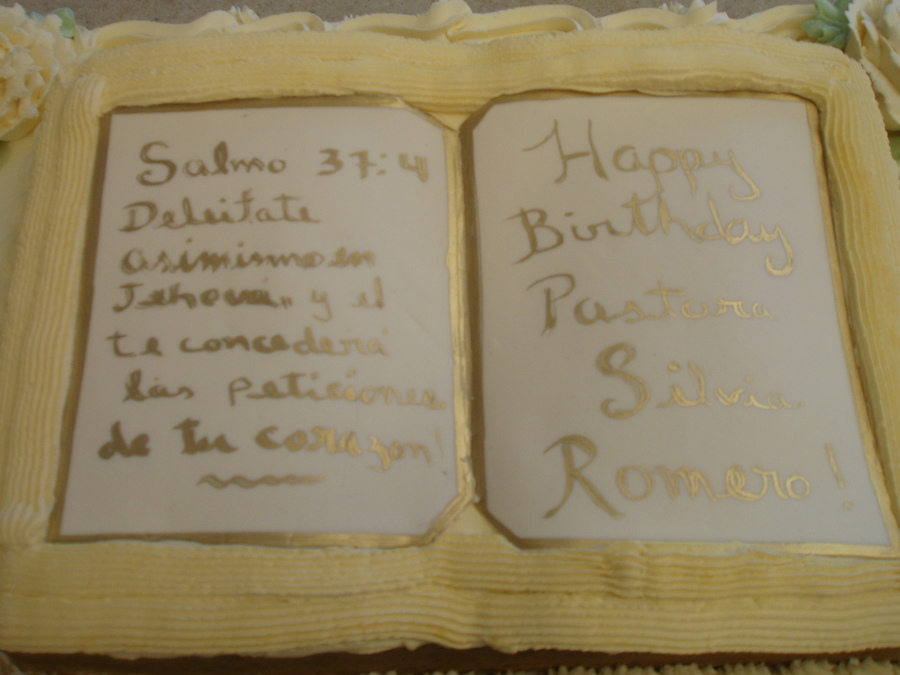 Salmo 37:4
Deleitate
asimismo en
Jehová, y el
te concederá
las peticiones
de tu corazon!
Happy
Birthday
Pastora
Silvia
Romero!